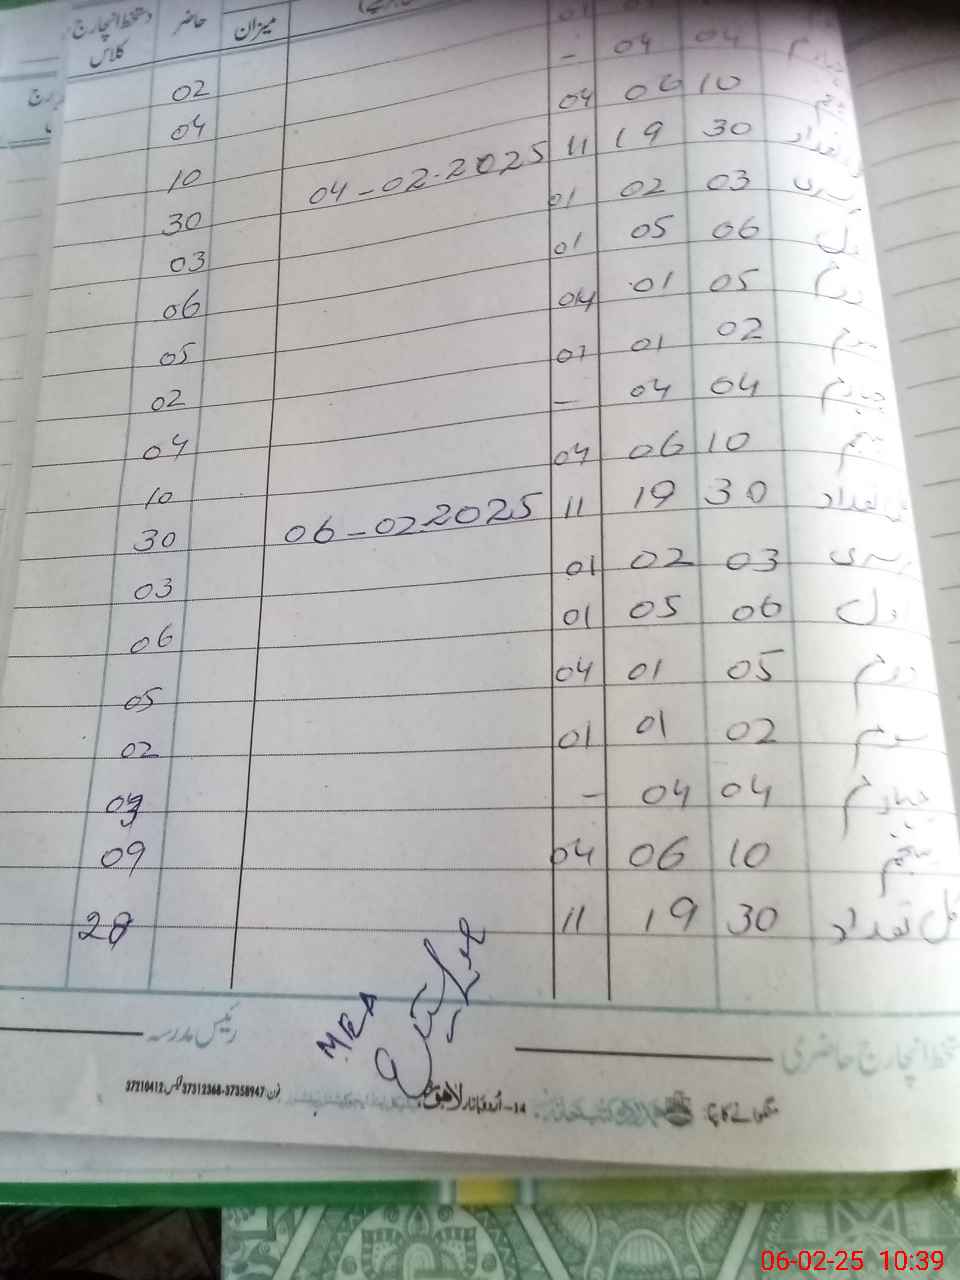 دستخط انچارج کلاس حاضر میزان
چہارم 04 04 - 02
پنجم 10 06 04 04
کل تعداد 30 19 11 04-02-2025 10
03 02 01 30
اول 06 05 01 03
دوم 05 01 04 06
سوم 02 01 01 05
چہارم 04 04 - 02
پنجم 10 06 04 04
کل تعداد 30 19 11 06-02-2025 10
03 02 01 30
اول 06 05 01 03
دوم 05 01 04 06
سوم 02 01 01 05
چہارم 04 04 - 02
پنجم 10 06 04
کل تعداد 30 19 11 09
28
MEA
دستخط انچارج حاضری رئیس مدرسہ
14-اُردو بازار لاہور فون 37358947-37312368 فیکس 37210412
06-02-25 10:39